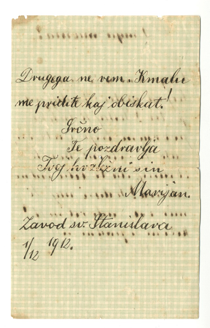 Drugega ne vem. Kmalu
me pridite kaj obiskat!
Srčno
Te pozdravlja
Tvoj hvaležni sin
Marijan.
Zavod sv. Stanislava
1/12 1912.